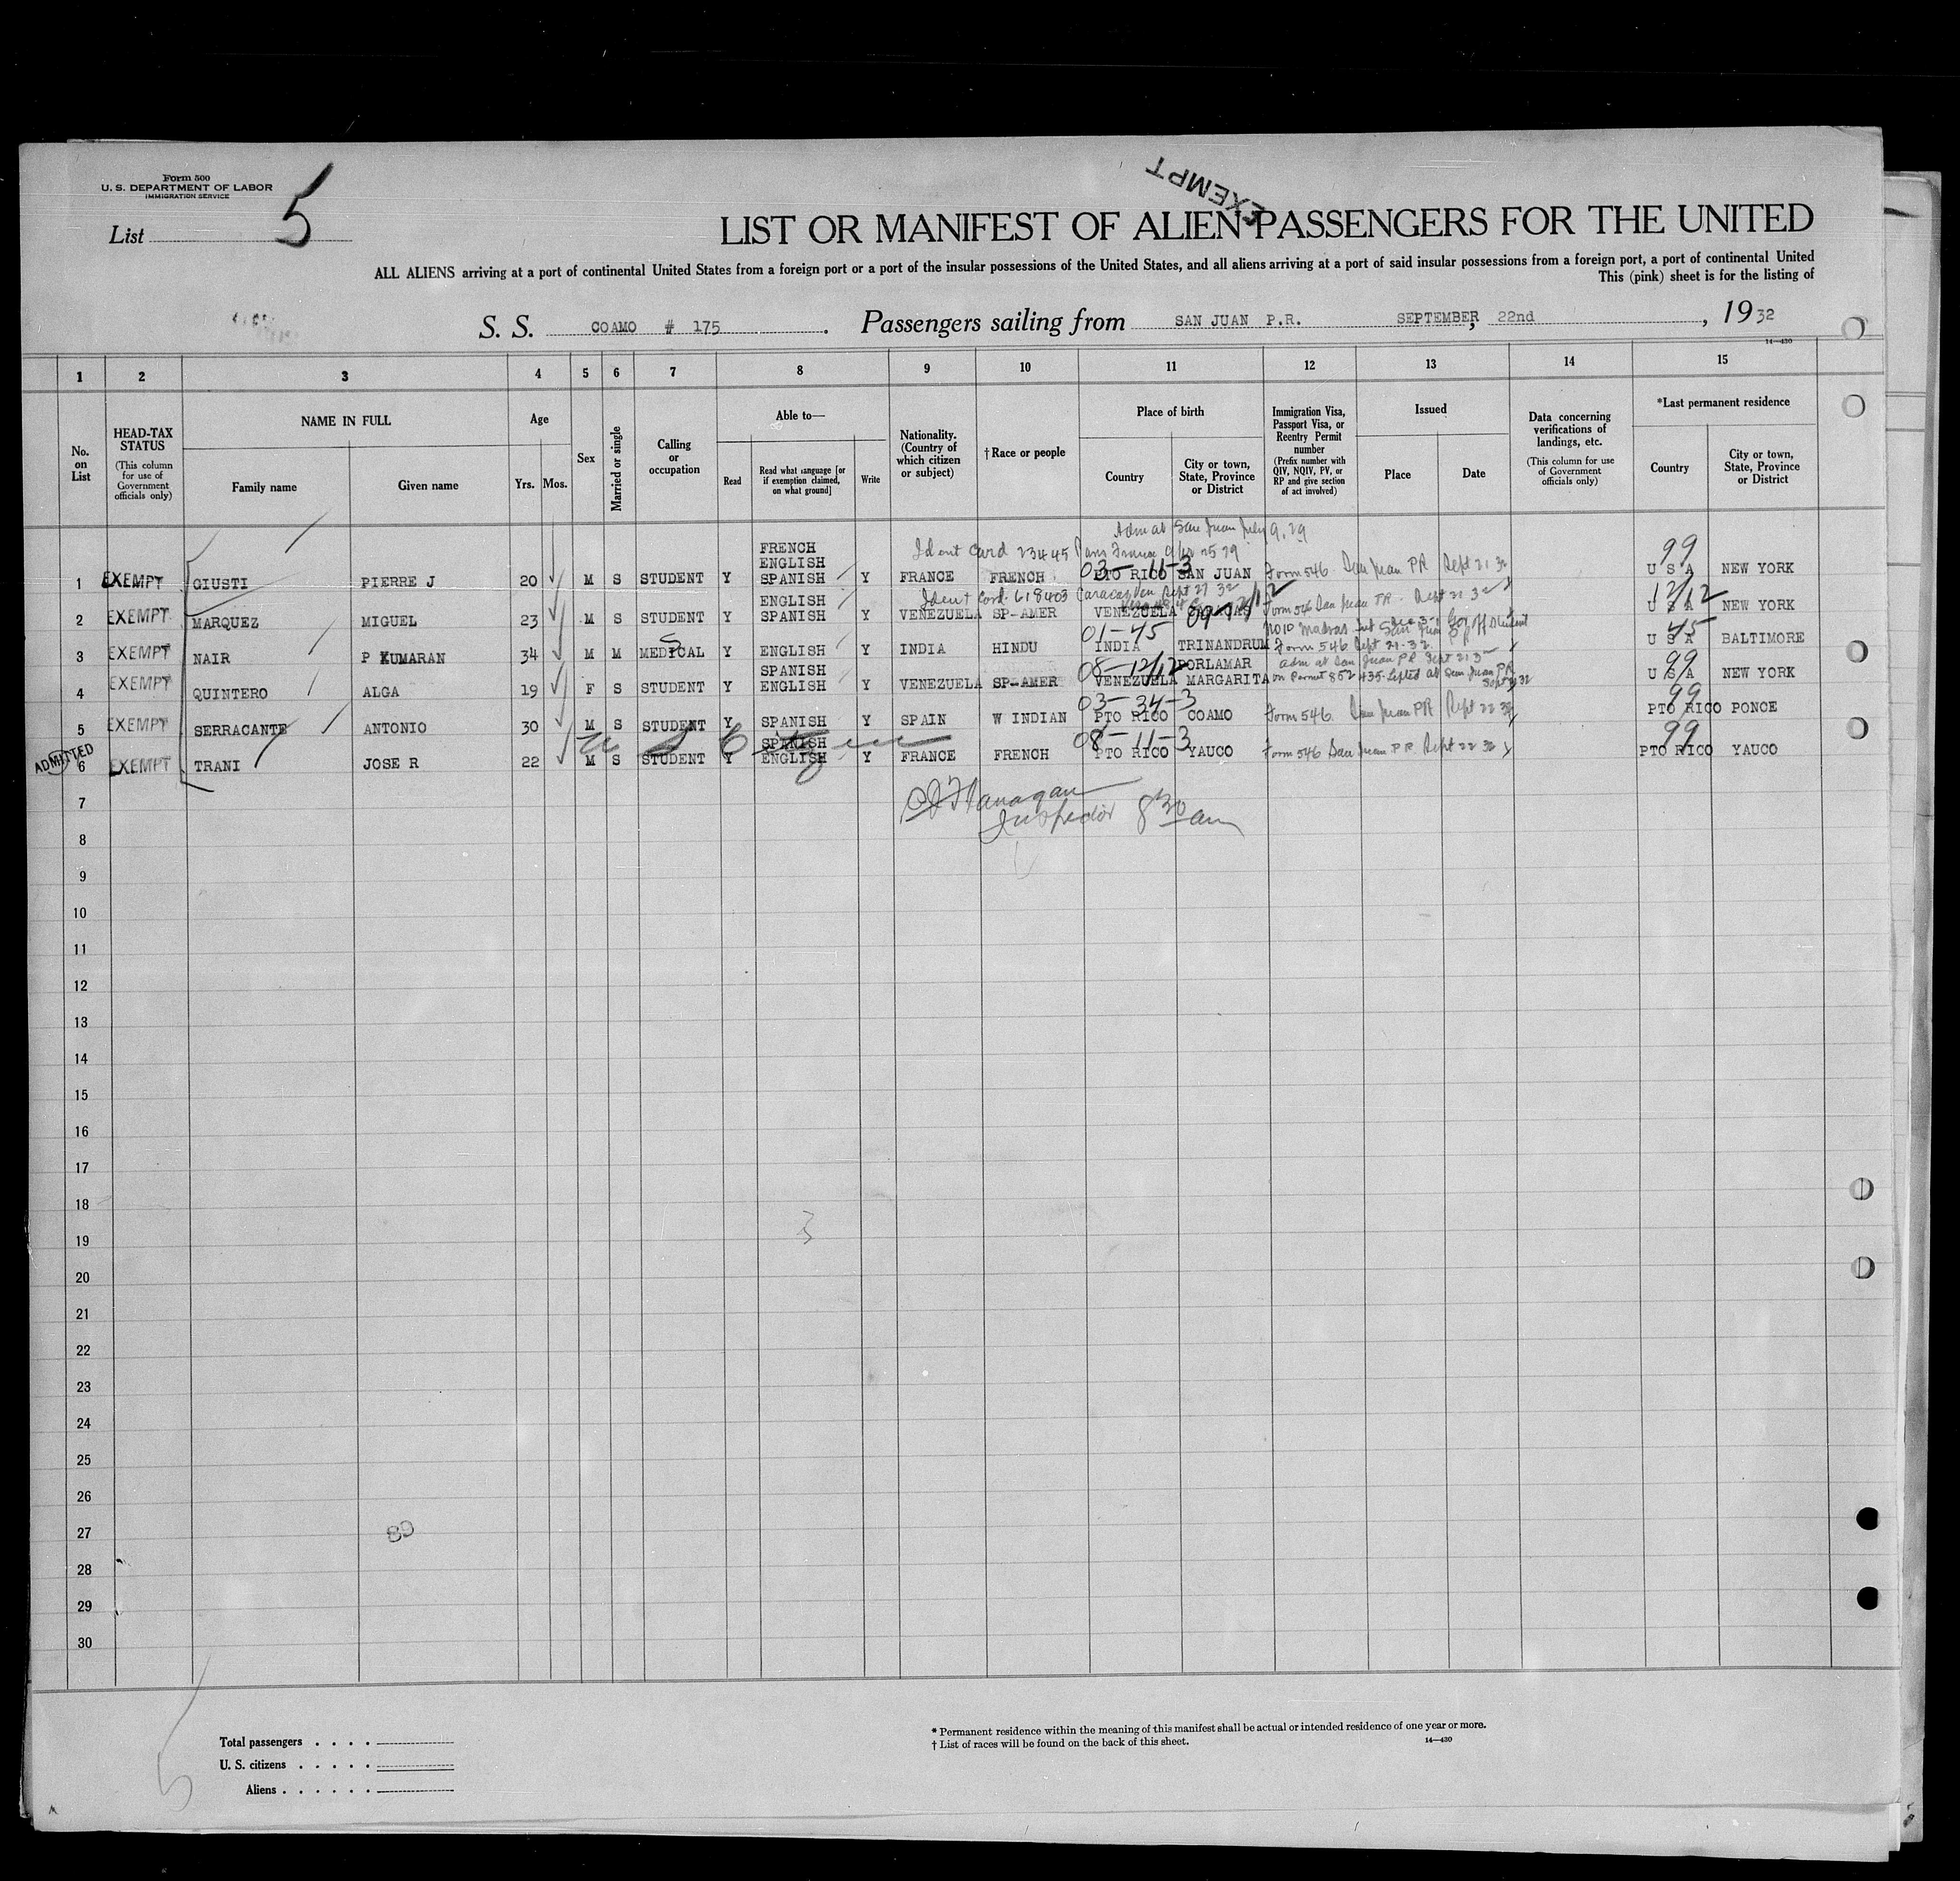 Form 500
U. S. DEPARTMENT OF LABOR
IMMIGRATION SERVICE
List 5
EXEMPT
LIST OR MANIFEST OF ALIEN PASSENGERS FOR THE UNITED
ALL ALIENS arriving at a port of continental United States from a foreign port or a port of the insular possessions of the United States, and all aliens arriving at a port of said insular possessions from a foreign port, a port of continental United
This (pink) sheet is for the listing of
S. S. COAMO # 175 . Passengers sailing from SAN JUAN P.R. SEPTEMBER , 22nd , 19 32
14—430
1 2 3 4 5 6 7 8 9 10 11 12 13 14 15
No. on List
HEAD-TAX STATUS
(This column for use of Government officials only)
NAME IN FULL
Family name Given name
Age
Yrs. Mos.
Sex
Married or single
Calling or occupation
Able to—
Read
Read what language [or if exemption claimed, on what ground]
Write
Nationality. (Country of which citizen or subject)
† Race or people
Place of birth
Country
City or town, State, Province or District
Immigration Visa, Passport Visa, or Reentry Permit number
(Prefix number with QIV, NQIV, PV, or RP and give section of act involved)
Issued
Place Date
Data concerning verifications of landings, etc.
(This column for use of Government officials only)
*Last permanent residence
Country
City or town, State, Province or District
Adm at San Juan July 9, 29
Ident Card 23445 Paris France
FRENCH
ENGLISH
03-11-3 99
1 EXEMPT GIUSTI PIERRE J 20 M S STUDENT Y SPANISH Y FRANCE FRENCH PTO RICO SAN JUAN Form 546 San Juan PR Sept 21 32 U S A NEW YORK
Ident Card 618403 Caracas Ven Sept 27 32
ENGLISH
12/12
2 EXEMPT MARQUEZ MIGUEL 23 M S STUDENT Y SPANISH Y VENEZUELA SP-AMER VENEZUELA CARACAS Form 546 San Juan P.R. Sept 21 32 U S A NEW YORK
01-45 No 10 Madras 45
3 EXEMPT NAIR P KUMARAN 34 M M MEDICAL S Y ENGLISH Y INDIA HINDU INDIA TRINANDRUM Form 546 Sept 21-32 U S A BALTIMORE
SPANISH
08-12/12 PORLAMAR adm at San Juan PR Sept 21 3 99
4 EXEMPT QUINTERO ALGA 19 F S STUDENT Y ENGLISH Y VENEZUELA SP-AMER VENEZUELA MARGARITA on Permit 852435 lifted at San Juan PR Sept 21 32 U S A NEW YORK
03-34-3 99
5 EXEMPT SERRACANTE ANTONIO 30 M S STUDENT Y SPANISH Y SPAIN W INDIAN PTO RICO COAMO Form 546 San Juan PR Sept 22 32 PTO RICO PONCE
U S Citizen
SPANISH
08-11-3 99
ADMITTED
6 EXEMPT TRANI JOSE R 22 M S STUDENT Y ENGLISH Y FRANCE FRENCH PTO RICO YAUCO Form 546 San Juan P R Sept 22 32 PTO RICO YAUCO
7 Flanagan
Inspector 8 30 am
8
9
10
11
12
13
14
15
16
17
18
3
19
20
21
22
23
24
25
26
27 89
28
29
30
5
Total passengers . . . .
U. S. citizens . . . . .
Aliens . . . . . .
* Permanent residence within the meaning of this manifest shall be actual or intended residence of one year or more.
† List of races will be found on the back of this sheet.
14—430